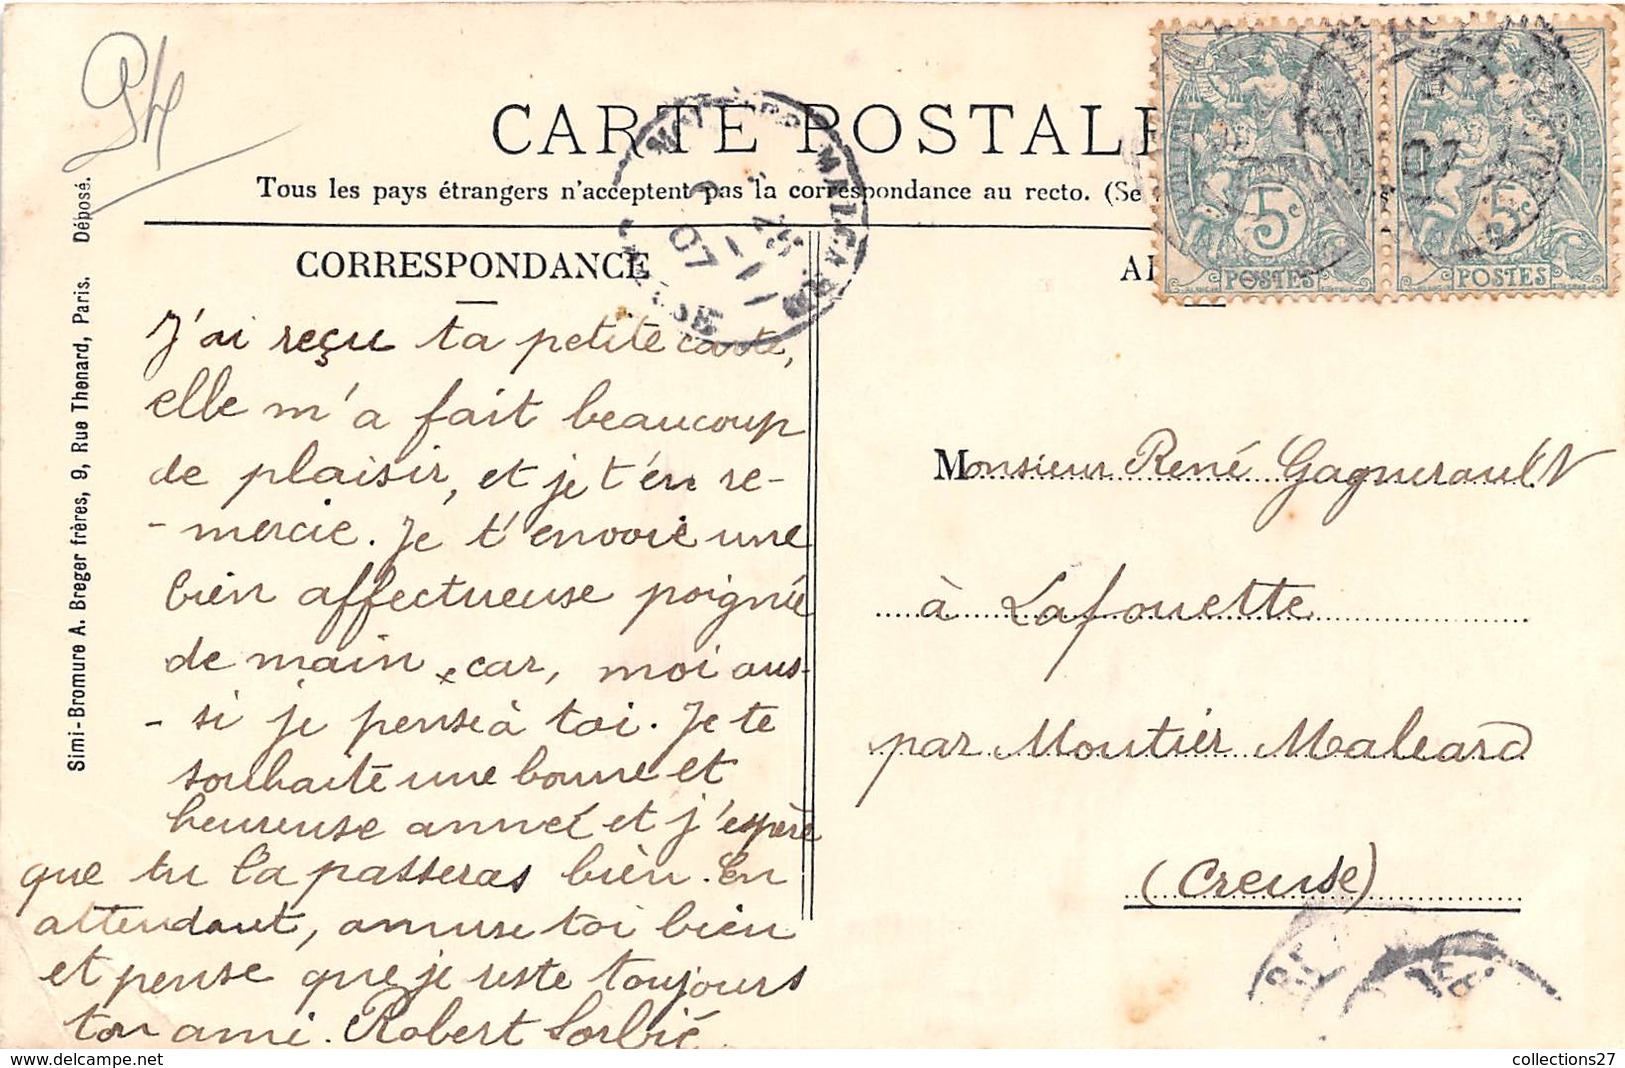 CARTE POSTALE
Tous les pays étrangers n'acceptent pas la correspondance au recto. (Se
CORRESPONDANCE
Simi-Bromure A. Breger frères, 9, Rue Thenard, Paris. Déposé.
5c
POSTES
5c
POSTES
07
MALEARD
CREUSE
J'ai reçu ta petite carte,
elle m'a fait beaucoup
de plaisir, et je t'en re-
-mercie. Je t'envoie une
bien affectueuse poignée
de main, car, moi aus-
-si je pense à toi. Je te
souhaite une bonne et
heureuse année et j'espère
que tu la passeras bien. En
attendant, amuse toi bien
et pense que je reste toujours
ton ami. Robert Sorbié
Monsieur René Gagnerault
à Lafouette
par Moutier Maleard
(Creuse)
collections27